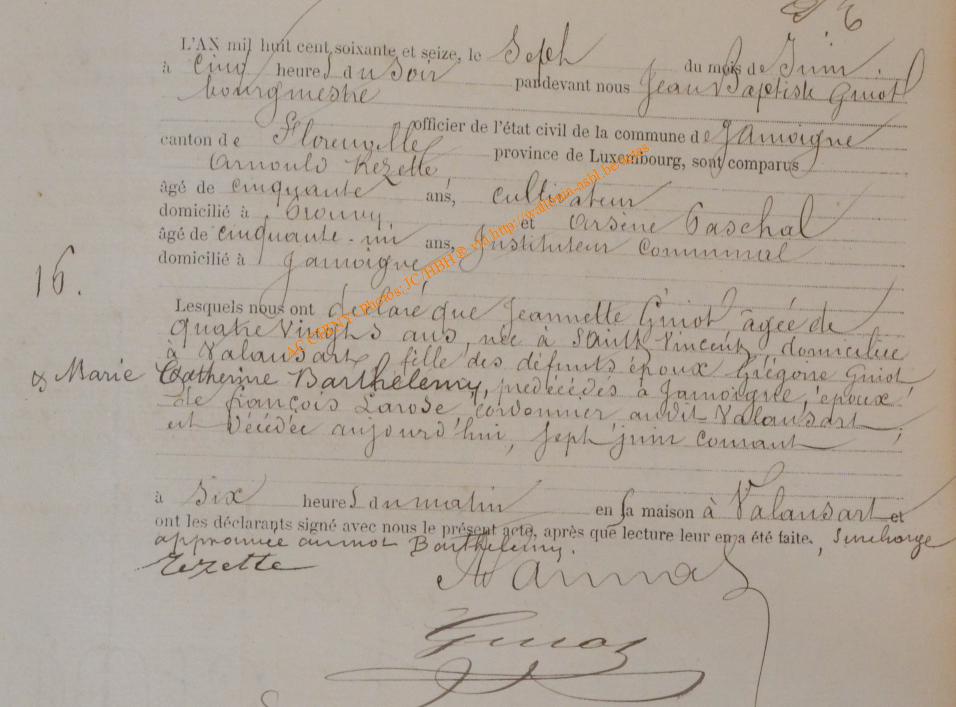 L'AN mil huit cent soixante et seize, le Sept du mois de Juin.
à cinq heures du soir pardevant nous Jean Baptiste Guiot
bourgmestre
officier de l'état civil de la commune de Jamoigne
canton de Florenville province de Luxembourg, sont comparus
Arnould Rezette,
âgé de cinquante ans, cultivateur
domicilié à Prouvy, et Arsène Paschal
âgé de cinquante-un ans, Instituteur Communal
domicilié à Jamoigne
AC CHINY Photos: JC/HBH® via http://wallonia-asbl.be
16.
Lesquels nous ont déclaré que Jeannette Guiot, âgée de
quatre vingts ans, née à Saint Vincent, domiciliée
à Valansart, fille des défunts époux Grégoire Guiot
& Marie Catherine Barthélemy, prédécédés à Jamoigne, époux
de françois Larose cordonnier audit Valansart,
est décédée aujourd'hui, sept juin courant
à six heures du matin en sa maison à Valansart et
ont les déclarants signé avec nous le présent acte, après que lecture leur en a été faite., Surcharge
approuvée au mot Barthelemy.
Rezette
Guiot